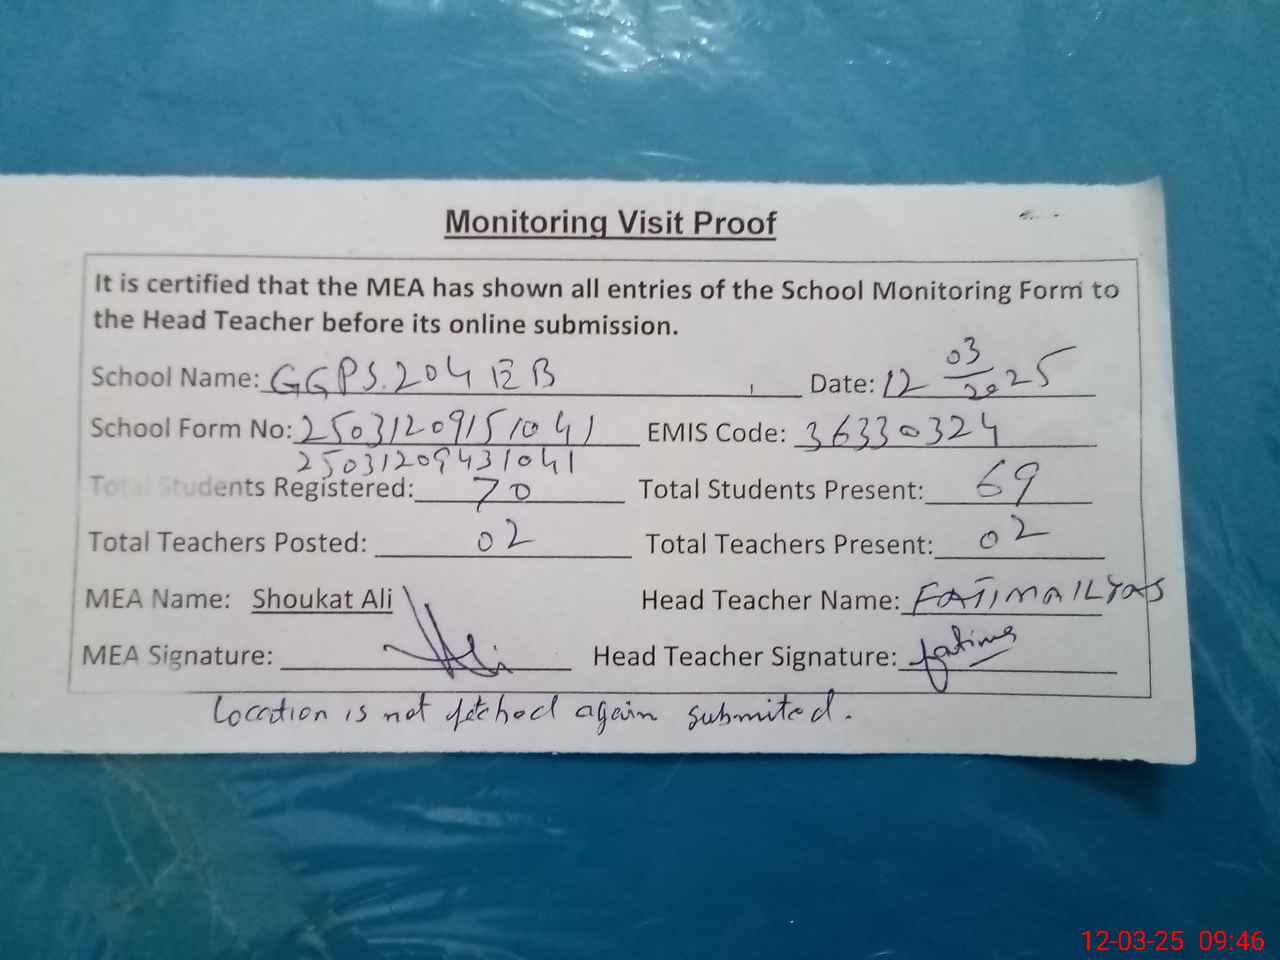 Monitoring Visit Proof
It is certified that the MEA has shown all entries of the School Monitoring Form to
the Head Teacher before its online submission.
School Name: GGPS.204 EB Date: 12 03/2025
School Form No: 25031209151041 EMIS Code: 36330324
25031209431041
Total Students Registered: 70 Total Students Present: 69
Total Teachers Posted: 02 Total Teachers Present: 02
MEA Name: Shoukat Ali Head Teacher Name: FATima ILYas
MEA Signature: Ali Head Teacher Signature: fatima
Location is not fetched again submited.
12-03-25 09:46